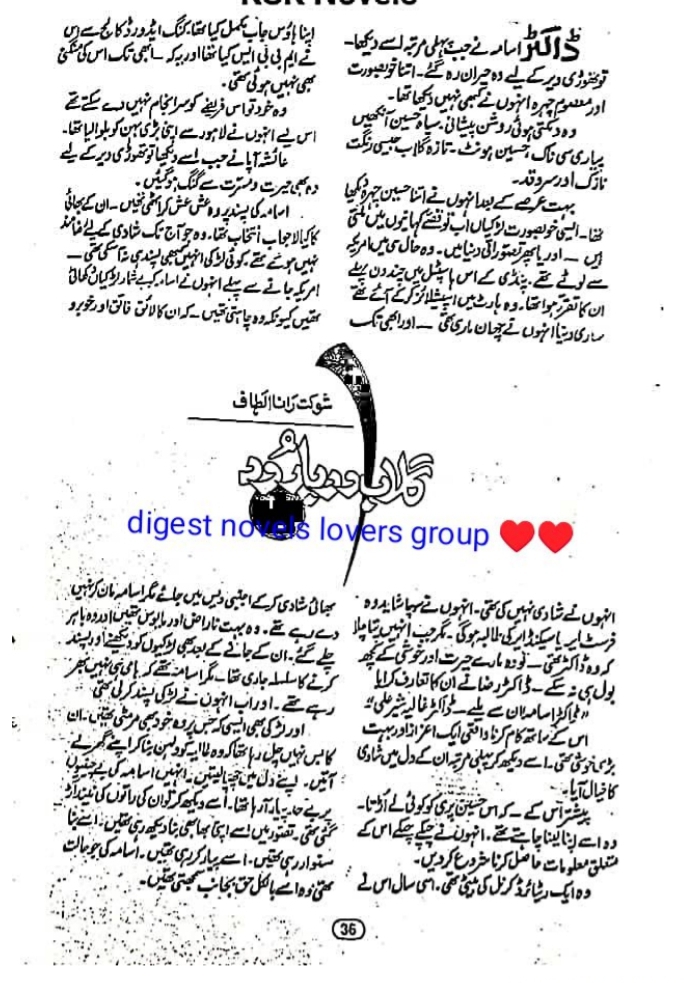 RSK Novels
ڈاکٹر اسامہ نے جب پہلی مرتبہ اسے دیکھا۔
تو تھوڑی دیر کے لیے وہ حیران رہ گئے۔ اتنا خوبصورت
اور معصوم چہرہ انہوں نے کبھی نہیں دیکھا تھا۔
وہ دمکتی ہوئی روشن پیشانی۔ سیاہ حسین آنکھیں
پیاری سی ناک، حسین ہونٹ۔ تازہ گلاب جیسی رنگت
نازک اور سرو قد۔
بہت عرصے کے بعد انہوں نے اتنا حسین چہرہ دیکھا
تھا۔ ایسی خوبصورت لڑکیاں اب تو قصے کہانیوں میں ملتی
ہیں — اور یا پھر تصوراتی دنیا میں۔ وہ حال ہی میں امریکہ
سے لوٹے تھے۔ پنڈی کے اس ہاسپٹل میں چند دن پہلے
ان کا تقرر ہوا تھا۔ وہ ہارٹ میں اسپیشلائز کرکے آئے تھے
ساری دنیا انہوں نے چھان ماری تھی — اور ابھی تک
انہوں نے شادی نہیں کی تھی۔ انہوں نے سوچا شاید وہ
فرسٹ ایئر یا سیکنڈ ایئر کی طالبہ ہوگی۔ مگر جب انہیں پتا چلا
کہ وہ ڈاکٹر تھی — تو وہ مارے حیرت اور خوشی کے کچھ
بول ہی نہ سکے — ڈاکٹر رضا نے ان کا تعارف کرایا
"ڈاکٹر اسامہ ان سے ملیے — ڈاکٹر شیر علی"
اس کے ساتھ کام کرنا واقعی ایک اعزاز اور بہت
بڑی خوشی تھی۔ اسے دیکھ کر پہلی مرتبہ ان کے دل میں شادی
کا خیال آیا۔
پیشتر اس کے — کہ اس حسین پری کو کوئی لے اڑتا۔
وہ اسے اپنا لینا چاہتے تھے۔ انہوں نے چپکے چپکے اس کے
متعلق معلومات حاصل کرنا شروع کر دیں۔
وہ ایک ریٹائرڈ کرنل کی بیٹی تھی۔ اسی سال اس نے
اپنا ہاؤس جاب مکمل کیا تھا۔ کنگ ایڈورڈ کالج سے اس
نے ایم بی بی ایس کیا تھا اور یہ کہ — ابھی تک اس کی منگنی
بھی نہیں ہوئی تھی۔
وہ خود تو اس فریضے کو سرانجام نہیں دے سکتے تھے
اس لیے انہوں نے لاہور سے اپنی بڑی بہن کو بلوا لیا تھا۔
عائشہ آپا نے جب اسے دیکھا تو تھوڑی دیر کے لیے
وہ بھی حیرت و مسرت سے گنگ ہو گئیں۔
اسامہ کی پسند پر وہ عش عش کر اٹھی تھیں۔ ان کے بھائی
کا کیا لاجواب انتخاب تھا۔ وہ جو آج تک شادی کے لیے رضامند
نہیں ہوئے تھے۔ کوئی لڑکی انہیں کبھی پسند ہی نہ آسکی تھی —
امریکہ جانے سے پہلے انہوں نے اسامہ کو بے شمار لڑکیاں دکھائی
تھیں کیونکہ وہ چاہتی تھیں — کہ ان کا لائق فائق اور خوبرو
بھائی شادی کرکے اجنبی دیس میں جائے مگر اسامہ مان کر نہیں
دے رہے تھے۔ وہ بہت ناراض اور مایوس تھیں اور وہ باہر
چلے گئے۔ ان کے جانے کے بعد بھی لڑکیوں کو دیکھنے اور پسند
کرنے کا سلسلہ جاری تھا۔ مگر اسامہ تھے کہ ہامی ہی نہیں بھر
رہے تھے۔ اور اب انہوں نے لڑکی پسند کرلی تھی
اور لڑکی بھی ایسی کہ جس پر وہ خود بھی مر مٹی تھیں۔ ان
کا بس نہیں چل رہا تھا کہ وہ کو دلہن بنا کر اپنے گھر لے
آتیں۔ اپنے دل میں چھپا لیتیں۔ انہیں اسامہ کی بے چینیوں
پر بے حد پیار آ رہا تھا۔ اسے دیکھ کر تو ان کی راتوں کی نیند اڑ
گئی تھی۔ تصور میں اسے اپنی بھابھی بنا دیکھ رہی تھیں۔ اسے بنا
سنوار رہی تھیں۔ اسے پیار کر رہی تھیں۔ اسامہ کی جو حالت
تھی وہ اسے بالکل حق بجانب سمجھتی تھیں۔
شوکت رانا الطاف
گلاب
digest novels lovers group ❤️❤️
36